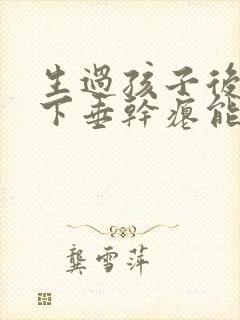 生過孩子後
下垂幹癟能
龔雪萍